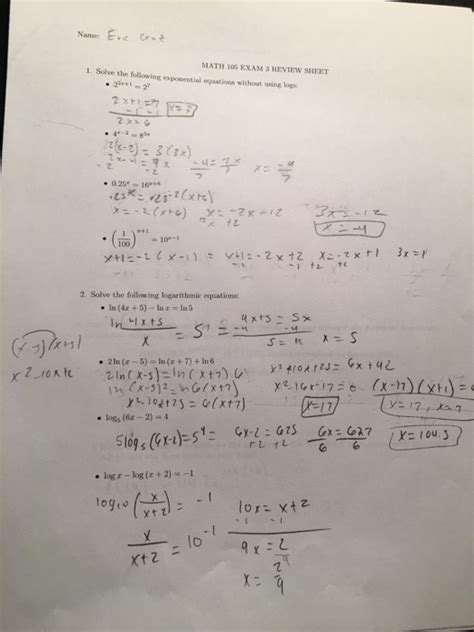 Name: Eric Cruz
MATH 105 EXAM 3 REVIEW SHEET
1. Solve the following exponential equations without using logs:
• 2^{2x+1} = 2^7
2x+1 = 7
-1 -1
x = 3
2x = 6
• 4^{x-2} = 8^{3x}
2(x-2) = 3(3x)
2x-4 = 9x
-2 -2
-4/7 = 7x/7
x = -4/7
• 0.25^x = 16^{x+6}
.25^x = .25^{-2(x+6)}
x = -2(x+6)
x = -2x-12
3x = -12
x = -4
• (1/100)^{x+1} = 10^{x-1}
x+1 = -2(x-1) = x+1 = -2x+2 x = -2x+1
-1 +2 +2
2. Solve the following logarithmic equations:
• ln(4x + 5) − ln x = ln 5
ln 4x+5/x = 5
4x+5 = 5x
-4 -4
x = 5
(x-5)(x+5)
x^2-10x+
• 2 ln(x − 5) = ln(x + 7) + ln 6
2ln(x-5) = ln(x+7) 6
ln(x-5)^2 = ln 6(x+7)
x^2-10x+25 = 6(x+7)
x^2-10x+25 = 6x+42
x^2-16x-17 = 0 (x-17)(x+1) =
x=17
• log_5(6x − 2) = 4
5log_5(6x-2) = 5^4 = 6x-2 = 625
+2 +2
6x/6 = 627/6
x = 104.5
• log x − log(x + 2) = −1
log10(x/x+2) = -1
x/x+2 = 10^{-1}
10x = x+2
-1 -1
9x = 2
x = 2/9